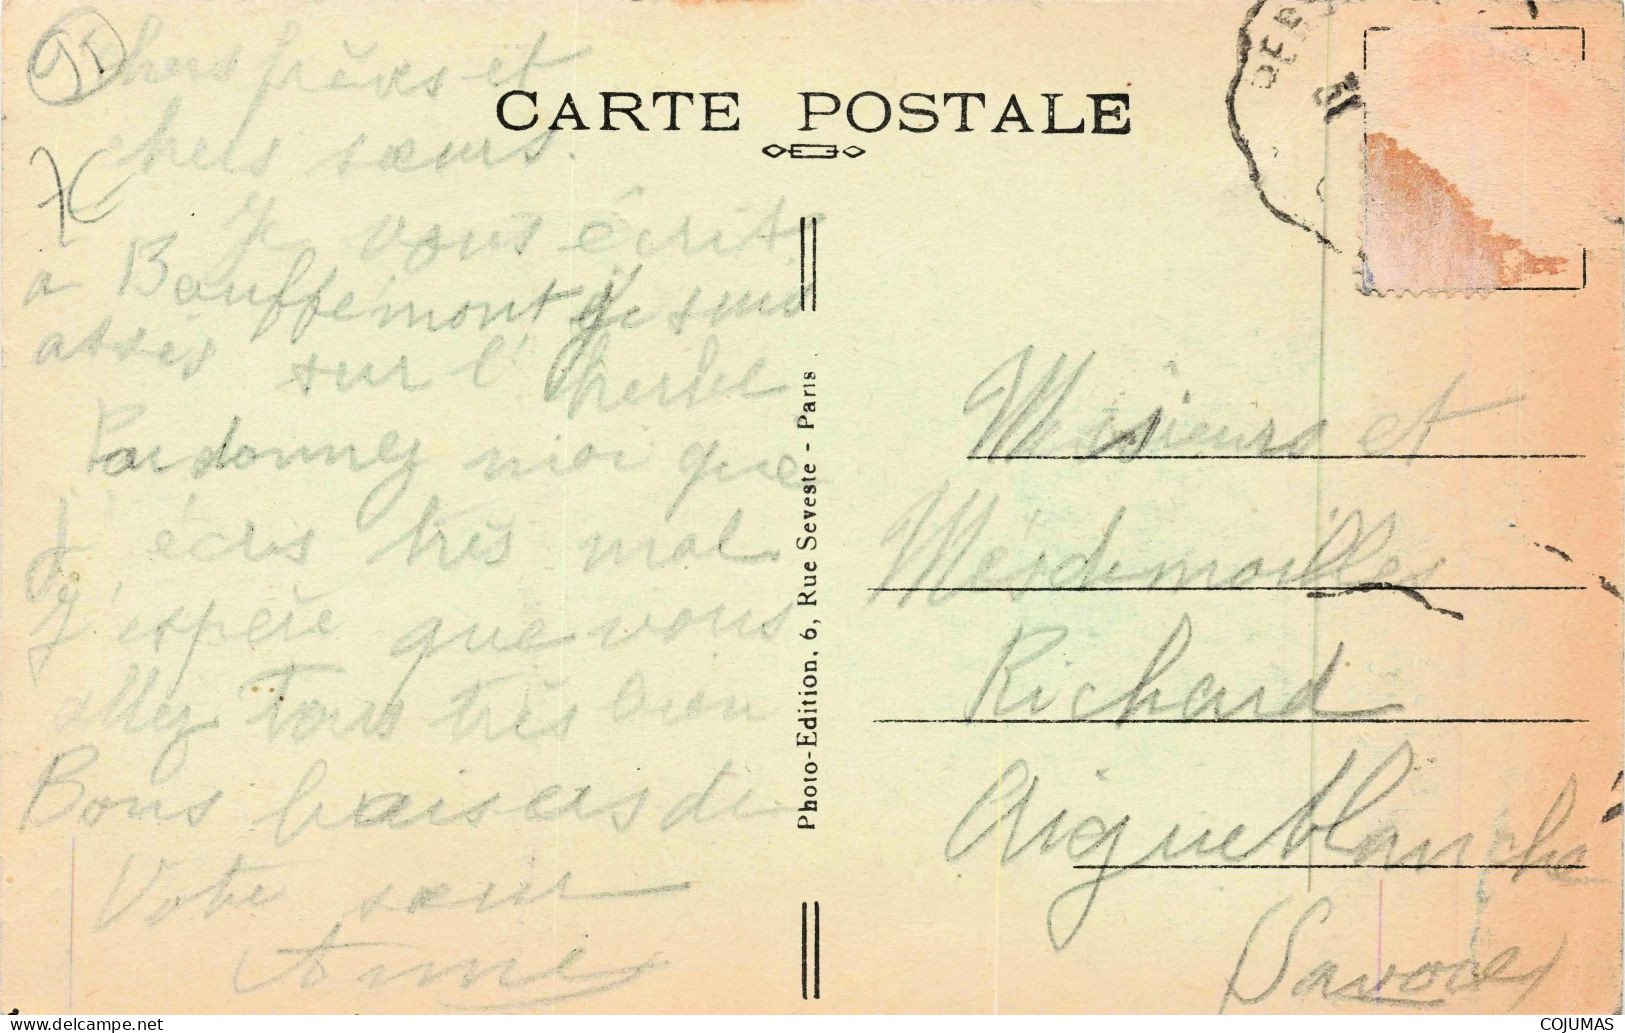 95
Chers frères et
chers sœurs.
Je vous écrit
a Bouffémont je suis
assis sur l'herbe
Pardonnez moi que
J'écris très mal
J'espère que vous
allez tous très bien
Bons baisers de
Votre sœur
CARTE POSTALE
Photo-Edition, 6, Rue Seveste - Paris
Messieurs et
Mesdemoilles
Richard
Aigueblanche
(Savoie)
delcampe.net
COJUMAS